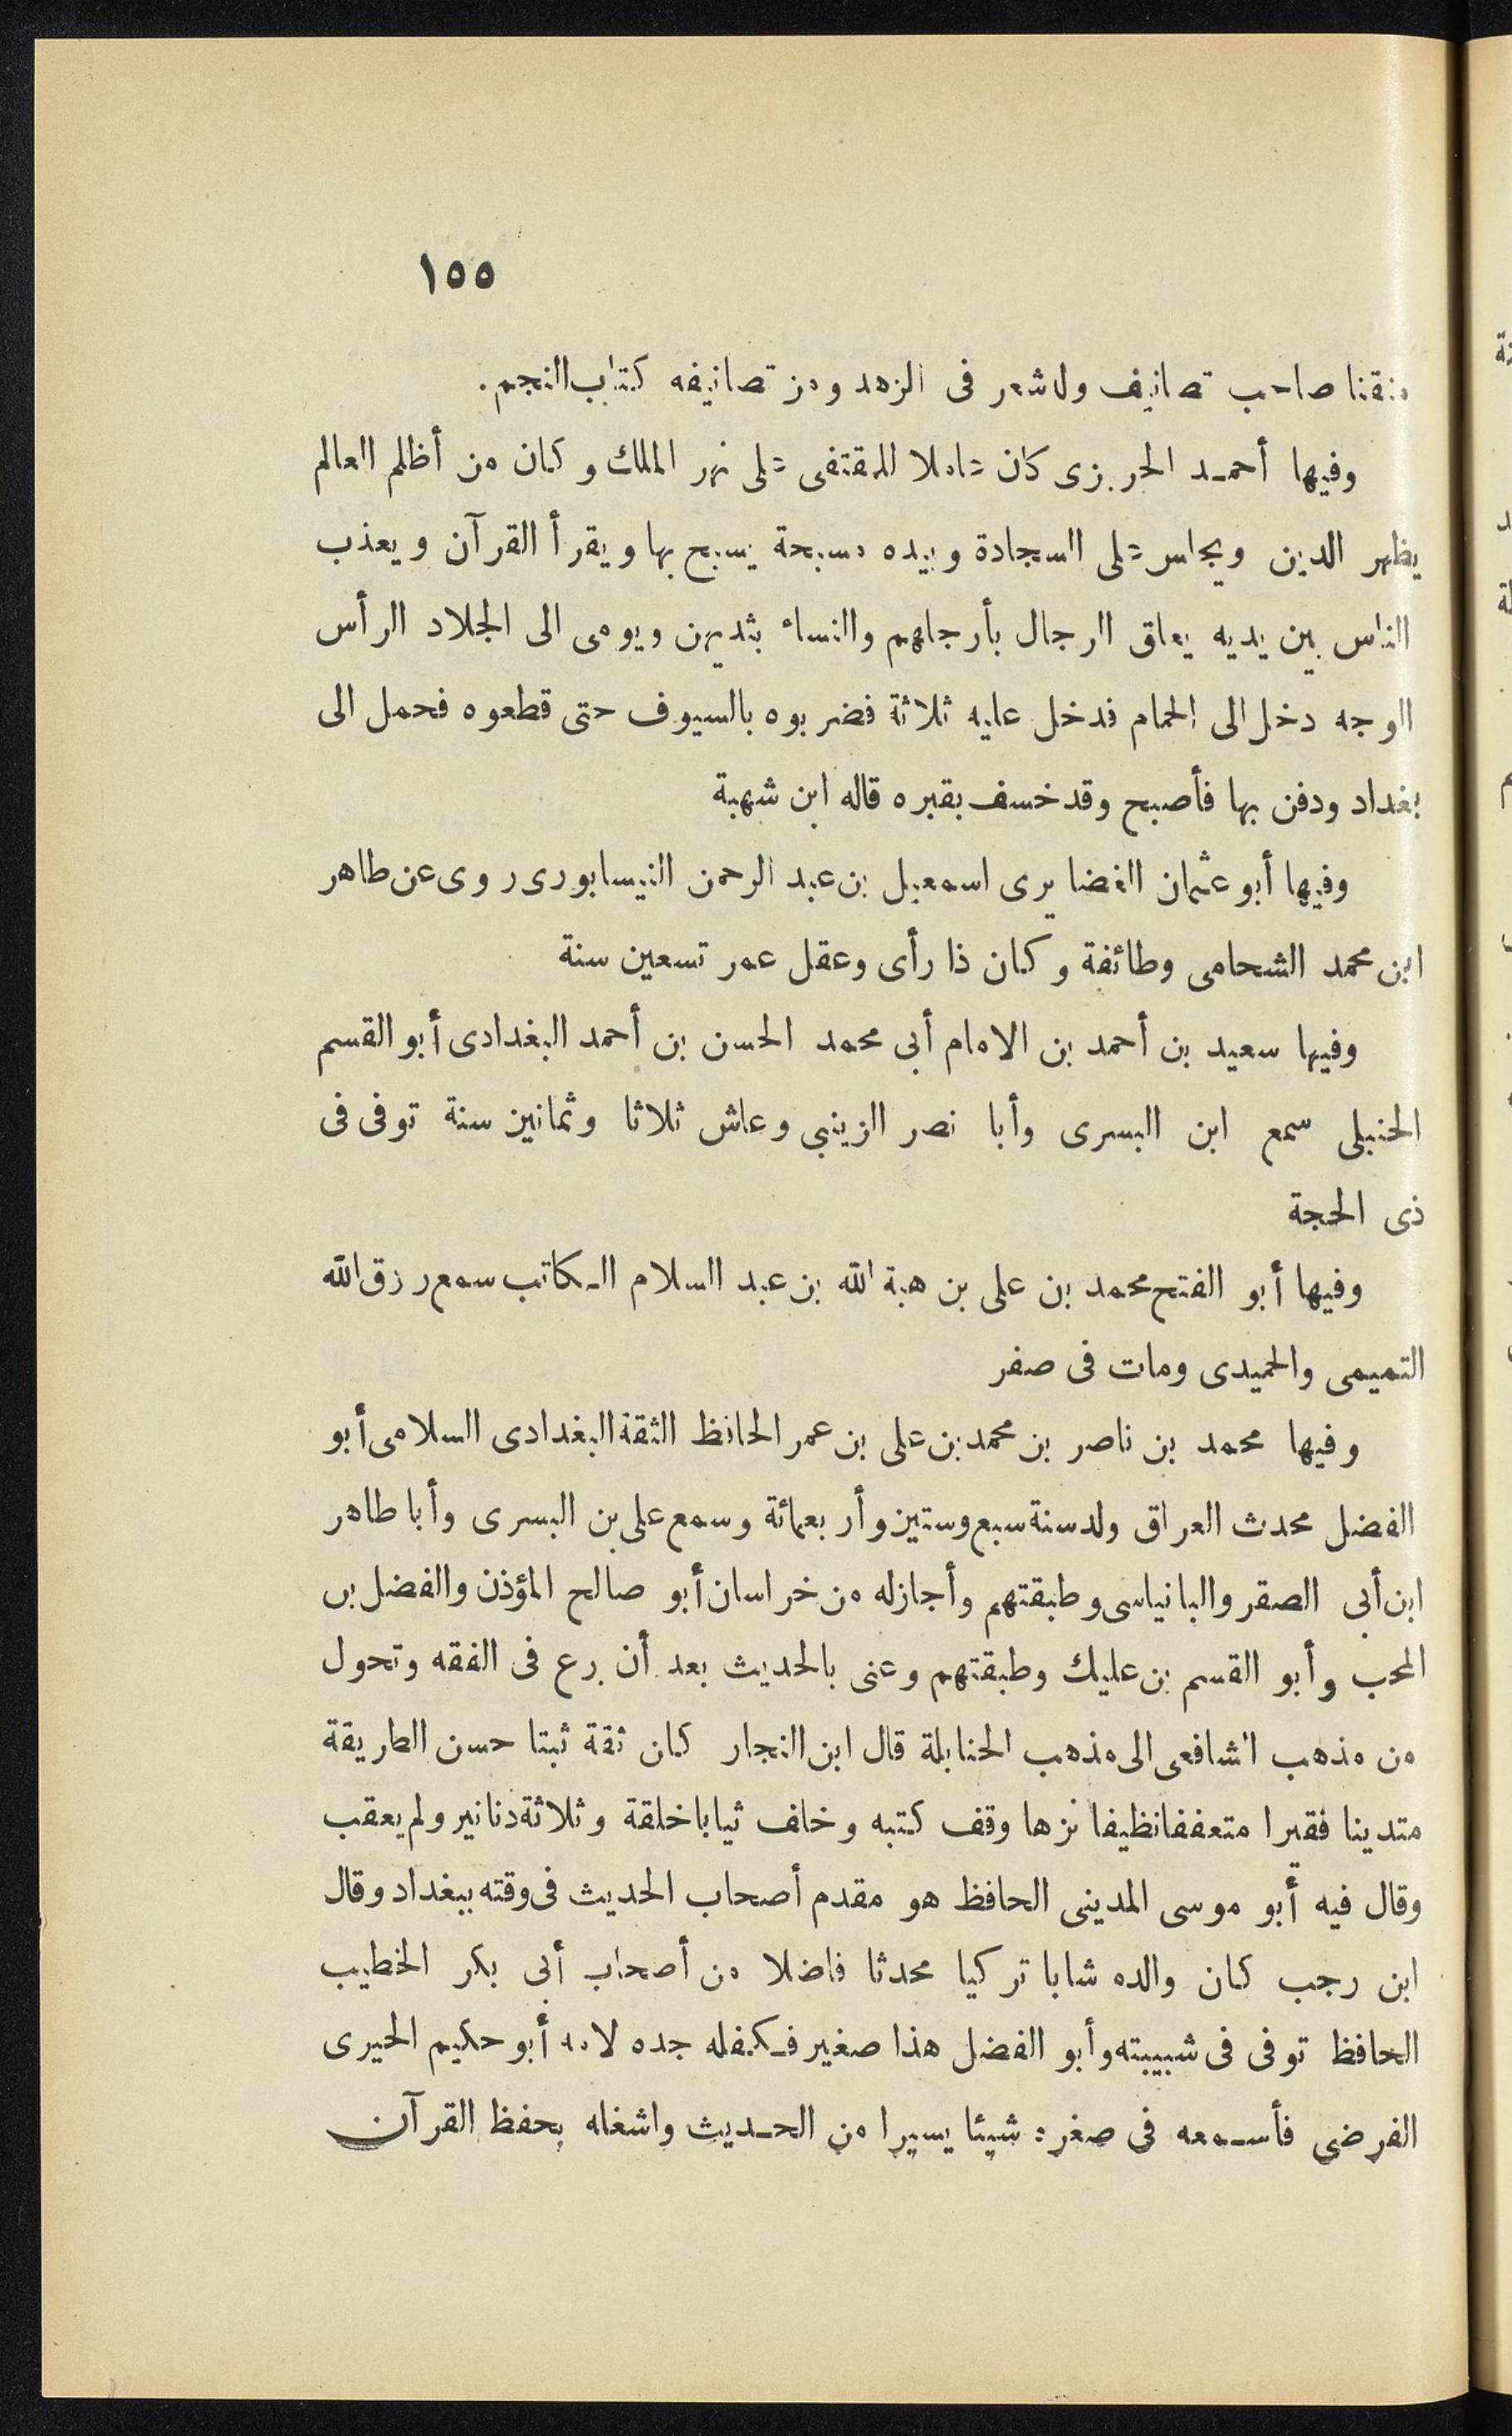 ١٥٥
متقنا صاحب تصانيف وله شعر فى الزهد ومن تصانيفه كتاب النجم.
وفيها أحمد الحريزى كان عاملا للمقتفى على نهر الملك وكان من أظلم العالم
يظهر الدين ويجلس على السجادة وبيده مسبحة يسبح بها ويقرأ القرآن ويعذب
الناس بين يديه يعلق الرجال بأرجلهم والنساء بثديهن ويومى الى الجلاد الرأس
الوجه دخل الى الحمام فدخل عليه ثلاثة فضربوه بالسيوف حتى قطعوه فحمل الى
بغداد ودفن بها فأصبح وقد خسف بقبره قاله ابن شهبة
وفيها أبو عثمان الغضايرى اسمعيل بن عبد الرحمن النيسابورى روى عن طاهر
ابن محمد الشحامى وطائفة وكان ذا رأى وعقل عمر تسعين سنة
وفيها سعيد بن أحمد بن الامام أبى محمد الحسن بن أحمد البغدادى أبو القسم
الحنبلى سمع ابن البسرى وأبا نصر الزينبى وعاش ثلاثا وثمانين سنة توفى فى
ذى الحجة
وفيها أبو الفتح محمد بن على بن هبة الله بن عبد السلام الكاتب سمع رزق الله
التميمى والحميدى ومات فى صفر
وفيها محمد بن ناصر بن محمد بن على بن عمر الحافظ الثقة البغدادى السلامى أبو
الفضل محدث العراق ولد سنة سبع وستين وأربعمائة وسمع على بن البسرى وأبا طاهر
ابن أبى الصقر والبانياسى وطبقتهم وأجاز له من خراسان أبو صالح المؤذن والفضل بن
المحب وأبو القسم بن عليك وطبقتهم وعنى بالحديث بعد أن برع فى الفقه وتحول
من مذهب الشافعى الى مذهب الحنابلة قال ابن النجار كان ثقة ثبتا حسن الطريقة
متدينا فقيرا متعففا نظيفا نزها وقف كتبه وخلف ثيابا خلقة وثلاثة دنانير ولم يعقب
وقال فيه أبو موسى المدينى الحافظ هو مقدم أصحاب الحديث فى وقته ببغداد وقال
ابن رجب كان والده شابا تركيا محدثا فاضلا من أصحاب أبى بكر الخطيب
الحافظ توفى فى شبيبته وأبو الفضل هذا صغير فكفله جده لامه أبو حكيم الخيرى
الفرضى فأسمعه فى صغره شيئا يسيرا من الحديث واشغله بحفظ القرآن